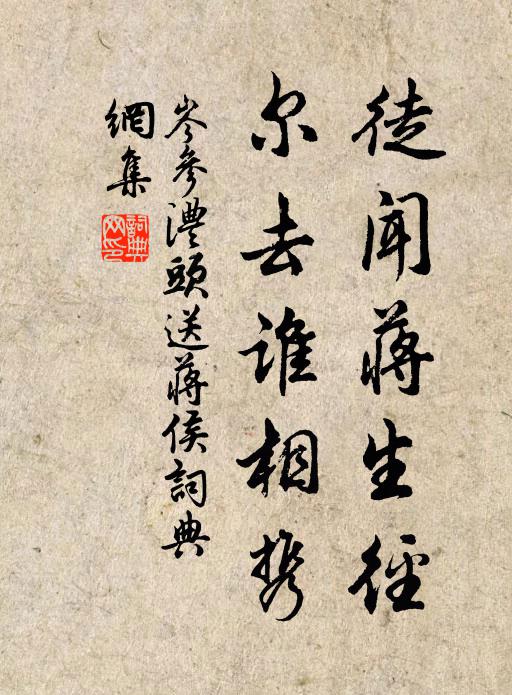 徒闻蒋生径
尔去谁相携
岑參澧頭送蔣侯詞典
網集
詞典网印